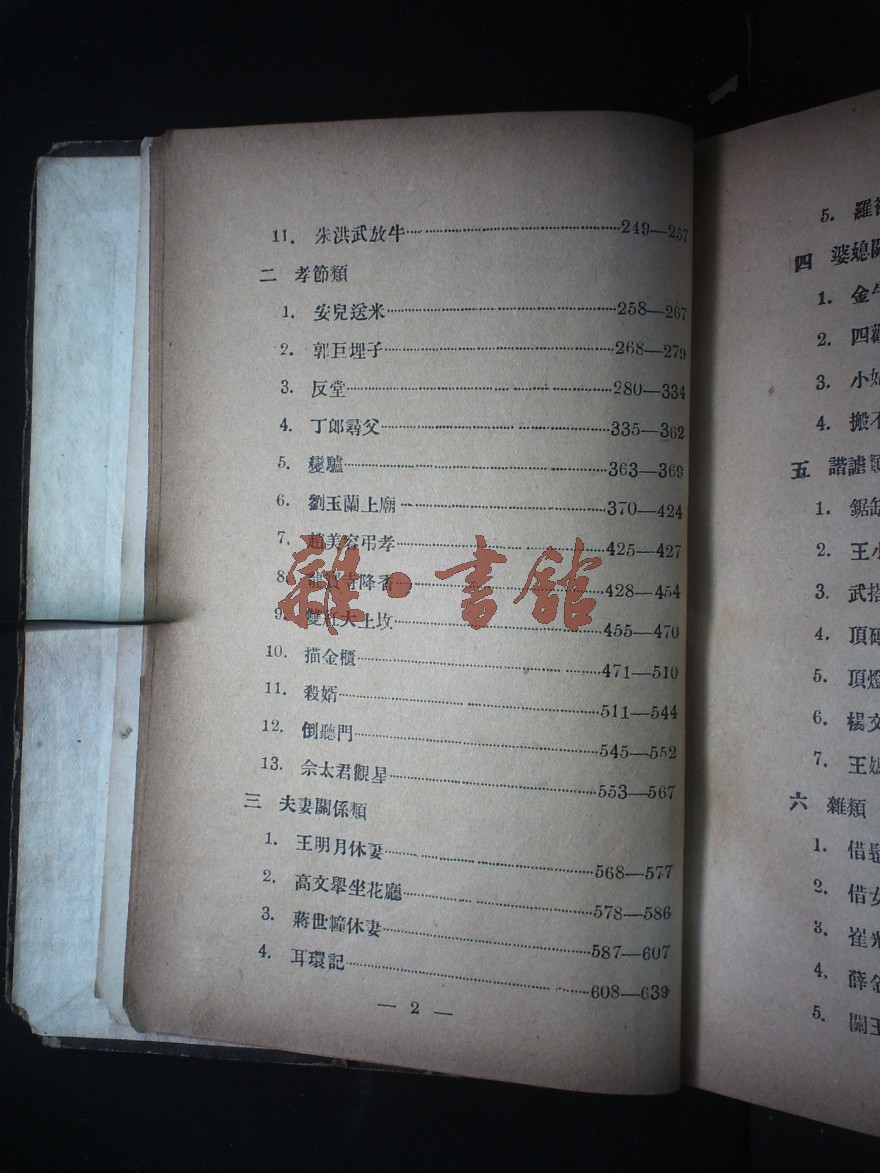 11. 朱洪武放牛 249—257
二 孝節類
1. 安兒送米 258—267
2. 郭巨埋子 268—279
3. 反堂 280—334
4. 丁郎尋父 335—362
5. 變驢 363—369
6. 劉玉蘭上廟 370—424
7. 趙美容弔孝 425—427
8. 龍寶寺降香 428—454
9. 雙紅大上坟 455—470
10. 描金櫃 471—510
11. 殺婿 511—544
12. 倒聽門 545—552
13. 佘太君觀星 553—567
三 夫妻關係類
1. 王明月休妻 568—577
2. 高文舉坐花廳 578—586
3. 蔣世幢休妻 587—607
4. 耳環記 608—639
— 2 —
雜·書館
5. 羅
四 婆媳關
1. 金牛
2. 四勸
3. 小姑
4. 搬不
五 諧謔類
1. 鋸缸
2. 王小
3. 武搭
4. 頂磚
5. 頂燈
6. 楊文
7. 王
六 雜類
1. 借
2. 借女
3. 崔光
4. 薛金
5. 關王